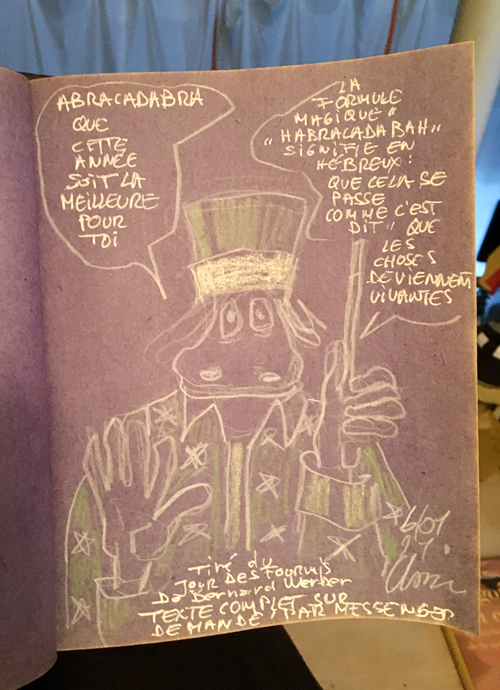 ABRACADABRA
QUE
CETTE
ANNÉE
SOIT LA
MEILLEURE
POUR
TOI
LA
FORMULE
MAGIQUE "
"HABRACADABAH"
SIGNIFIE EN
HÉBREUX:
QUE CELA SE
PASSE
COMME C'EST
DIT" QUE
LES
CHOSES
DEVIENNENT
VIVANTES
6/01
24.
Tiré du
JOUR DES FOURMIS
De Bernard Werber
TEXTE COMPLET SUR
DEMANDE / PAR MESSENGER